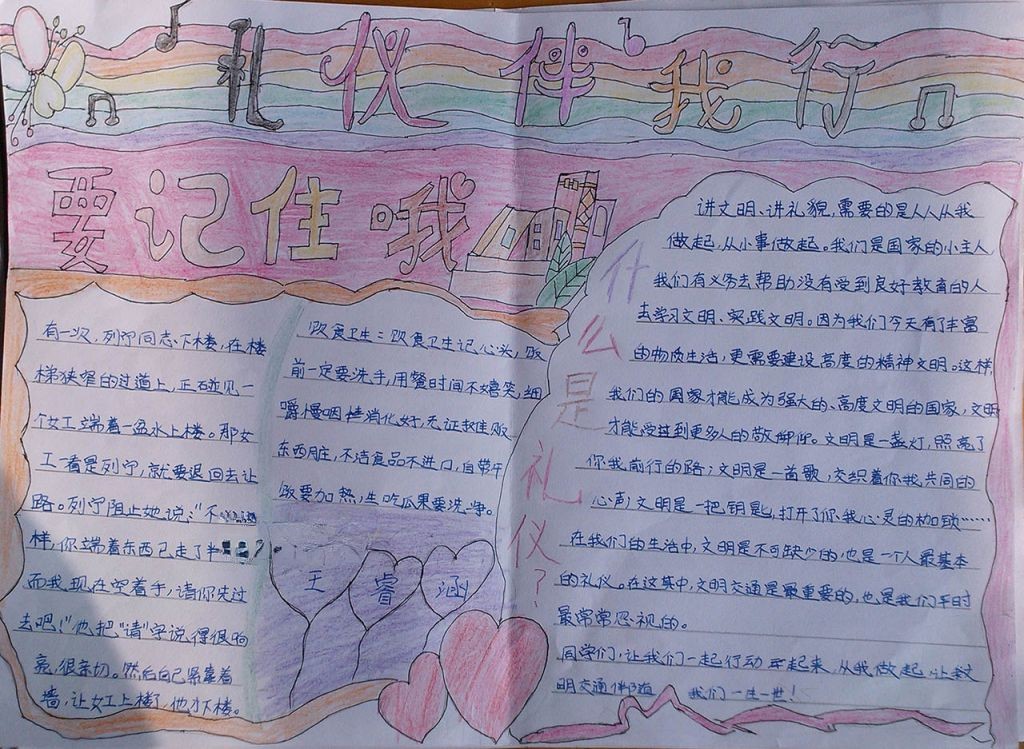 礼仪伴我行
要记住哦
有一次,列宁同志下楼,在楼
梯狭窄的过道上,正碰见一
个女工端着一盆水上楼。那女
工一看是列宁,就要退回去让
路。列宁阻止她说:"不
样,你端着东西已走了半
而我现在空着手,请你先过
去吧!"他把"请"字说得很响
亮,很亲切。然后自己紧靠着
墙,让女工上楼了,他才下楼。
饮食卫生:饮食卫生记心头,饭
前一定要洗手,用餐时间不嬉笑,细
嚼慢咽 消化好,无证摊贩
东西脏,不洁食品不进口,自带午
饭要加热,生吃瓜果要洗净。
王睿涵
什么是礼仪?
讲文明、讲礼貌,需要的是人人从我
做起,从小事做起。我们是国家的小主人
我们有义务去帮助没有受到良好教育的人
去学习文明、实践文明。因为我们今天有了丰富
的物质生活,更需要建设高度的精神文明。这样,
我们的国家才能成为强大的、高度文明的国家,文明
才能受到更多人的敬仰。文明是一盏灯,照亮了
你我前行的路;文明是一首歌,交织着你我共同的
心声;文明是一把钥匙,打开了你我心灵的枷锁……
在我们的生活中,文明是不可缺少的,也是一个人最基本
的礼仪。在这其中,文明交通是最重要的,也是我们平时
最常常忽视的。
同学们,让我们一起行动起来,从我做起,让文
明交通伴随 我们一生一世!